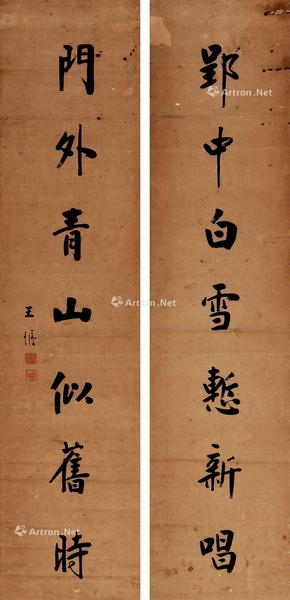 郢中白雪慙新唱
門外青山似舊時
王
Artron.Net
Artron.Net
Artron.Net
Artron.Net